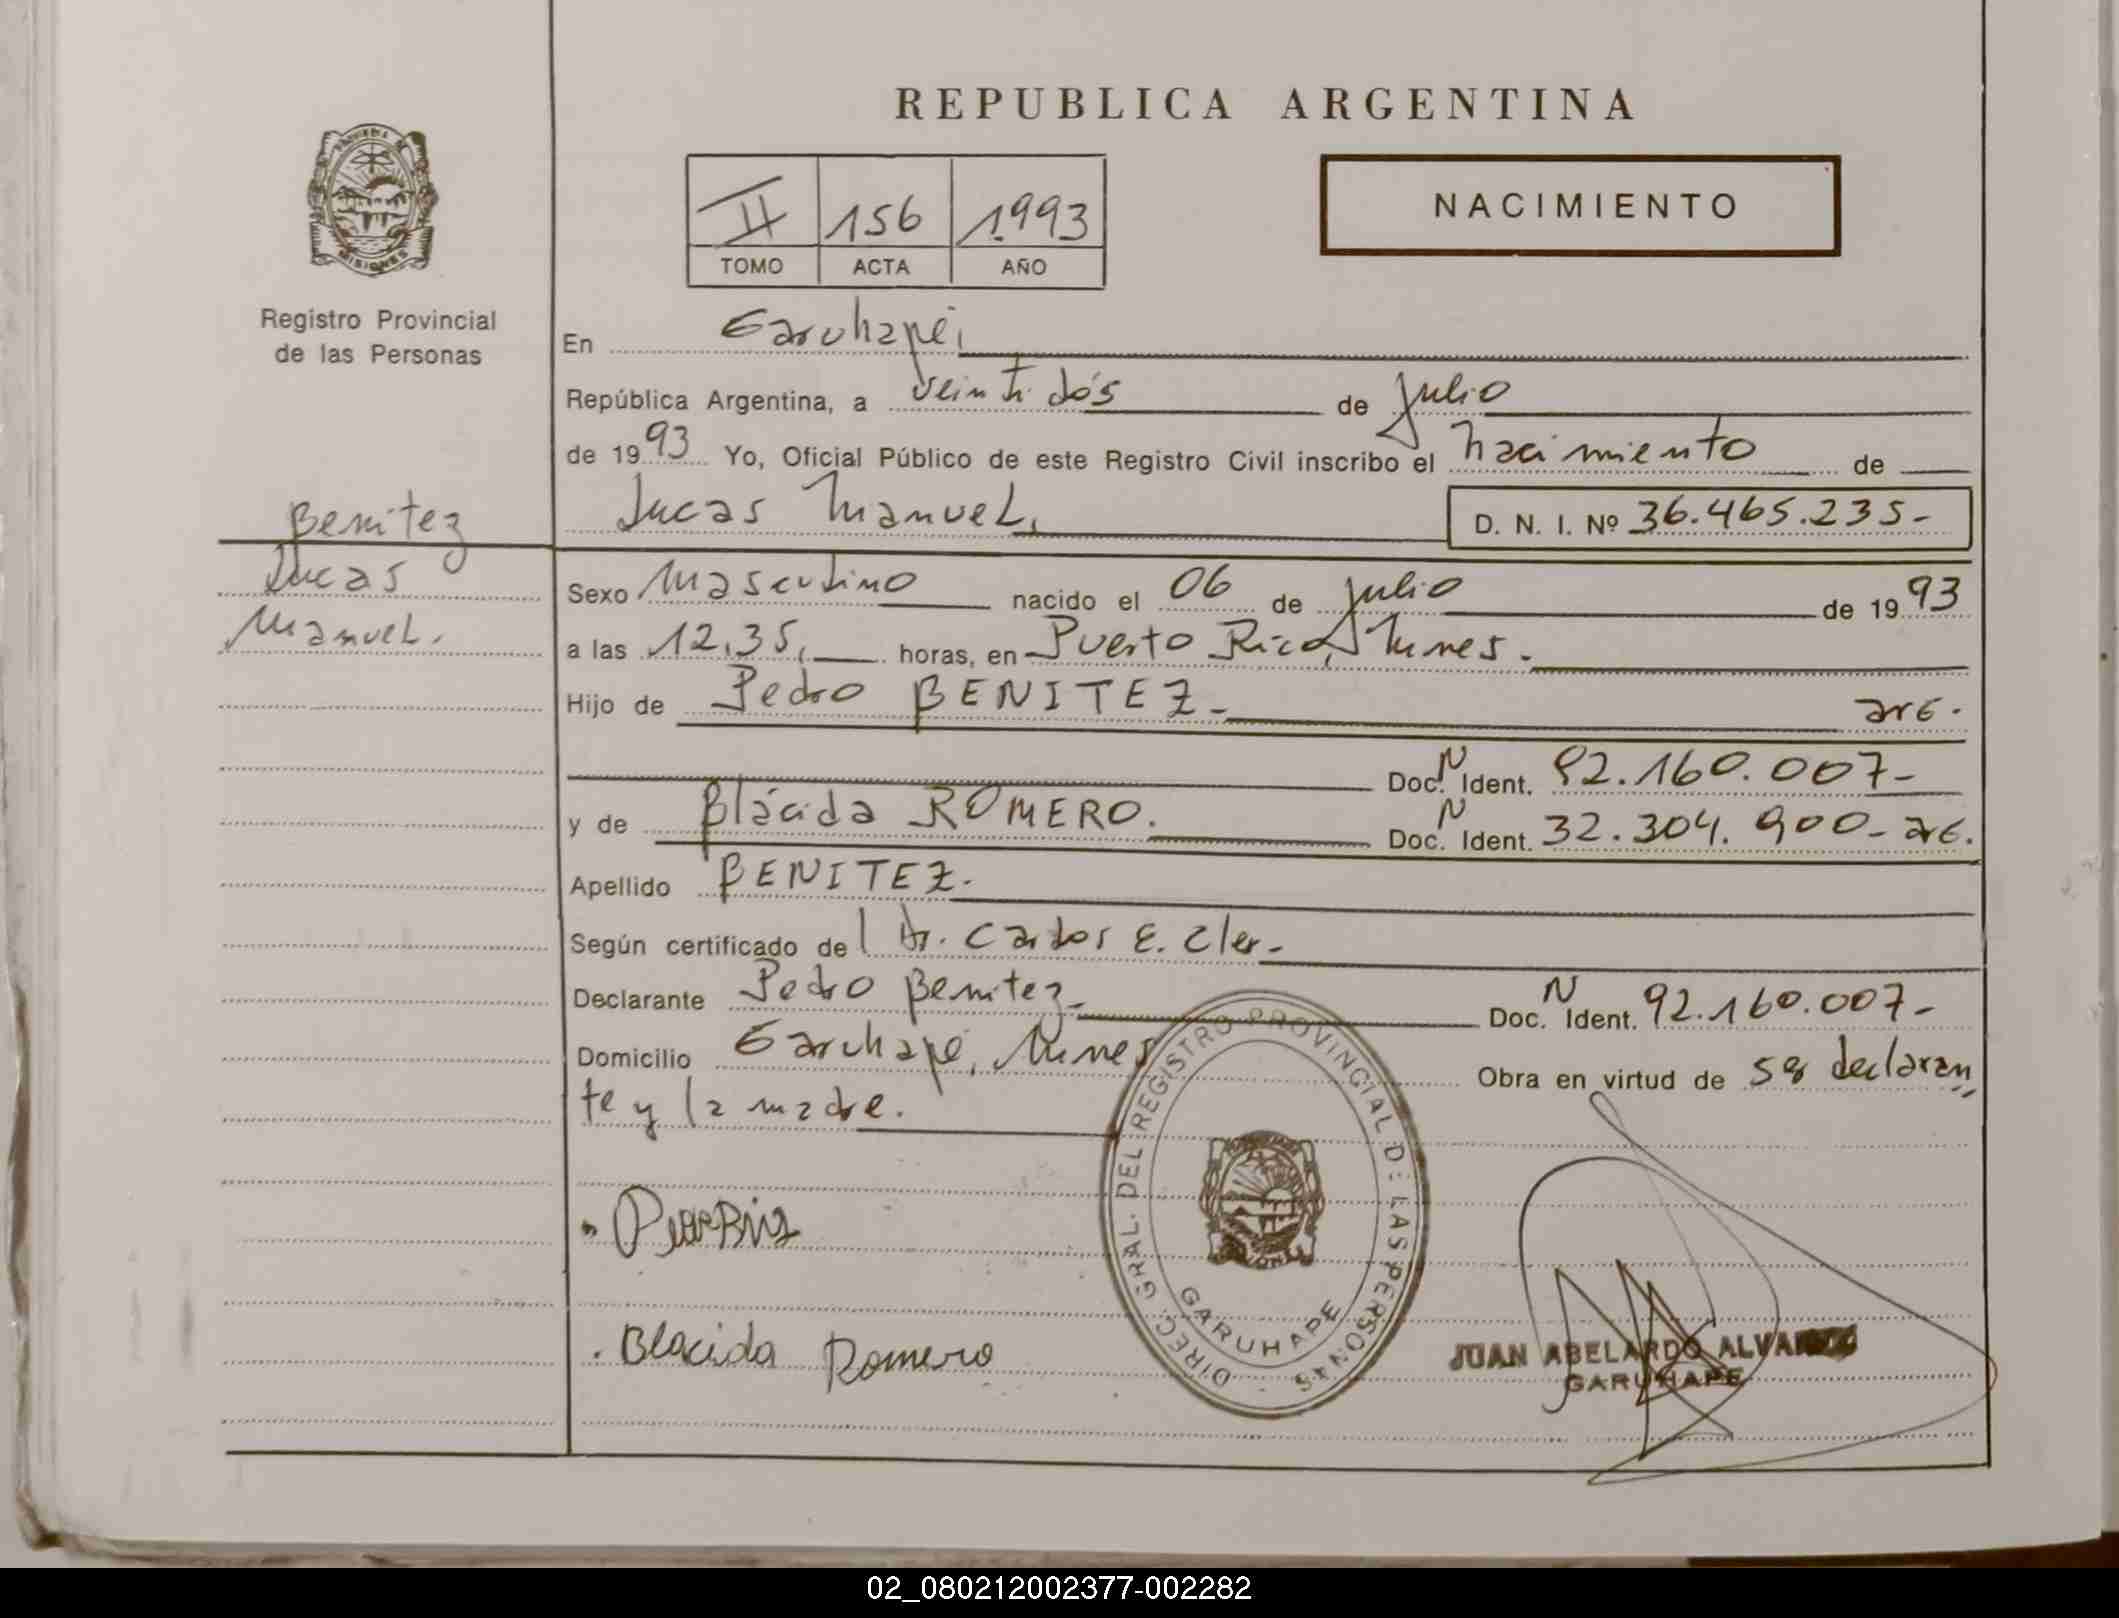 REPUBLICA ARGENTINA
PROVINCIA DE MISIONES
Registro Provincial
de las Personas
II 156 1993
TOMO ACTA AÑO
NACIMIENTO
En Garuhapé,
República Argentina, a veintidós de Julio
de 1993 Yo, Oficial Público de este Registro Civil inscribo el nacimiento de
Lucas Manuel, D. N. I. Nº 36.465.235-
Benitez
Lucas
Manuel.
Sexo Masculino nacido el 06 de Julio de 1993
a las 12,35, horas, en Puerto Rico,
Hijo de Pedro BENITEZ- arg.
Doc. N Ident. 92.160.007-
y de Blácida ROMERO. Doc. N Ident. 32.304.900- arg.
Apellido BENITEZ.
Según certificado del Dr. Carlos E. Cler-
Declarante Pedro Benitez- Doc. N Ident. 92.160.007-
Domicilio Garuhapé, Obra en virtud de ser declaran
te y la madre.
DIREC. GRAL. DEL REGISTRO PROVINCIAL DE LAS PERSONAS
GARUHAPE
Blacida Romero
JUAN ABELARDO
GARUHAPE
02_080212002377-002282